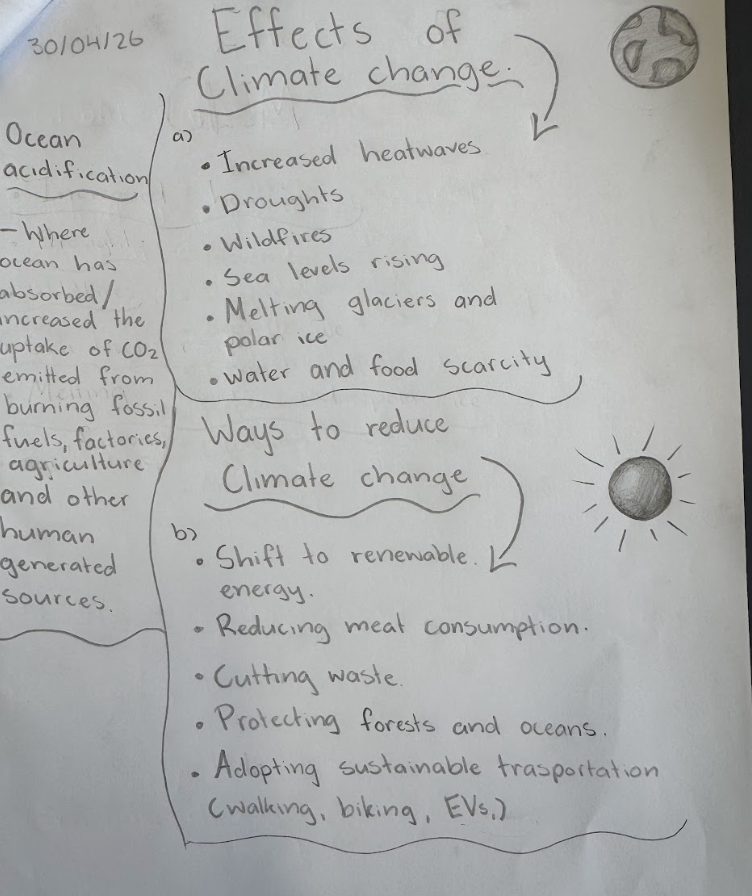 30/04/26
Effects of
Climate change.
Ocean
acidification
- Where
ocean has
absorbed/
increased the
uptake of CO2
emitted from
burning fossil
fuels, factories,
agriculture
and other
human
generated
sources.
a)
• Increased heatwaves
• Droughts
• Wildfires
• Sea levels rising
• Melting glaciers and
polar ice
• Water and food scarcity
Ways to reduce
Climate change
b)
• Shift to renewable.
energy.
• Reducing meat consumption.
• Cutting waste.
• Protecting forests and oceans.
• Adopting sustainable trasportation
(walking, biking, EVs,)